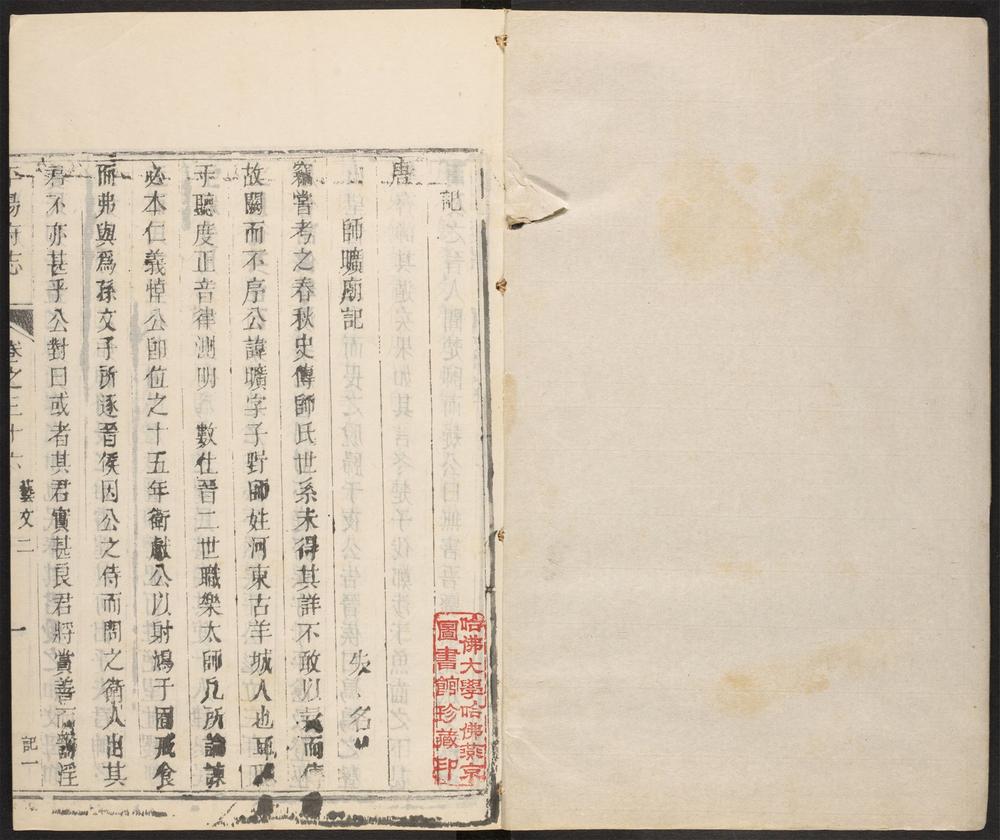 記
唐
師曠廟記　失名
竊嘗考之春秋史傳師氏世系未得其詳不敢以而
故闕而不序公諱曠字子野師姓河東古羊城人也
乎聽度正音律測明 數仕晉二世職樂太師凡所諭諫
必本仁義悼公卽位之十五年衛獻公以射鴻于囿戒食
而弗與爲孫文子所逐晉侯因公之侍而問之衛人出其
君不亦甚乎公對曰或者其君實甚良君將賞善而淫
陽府志　卷之三十六　藝文二　一　記一
哈佛大學哈佛燕京
圖書館珍藏印